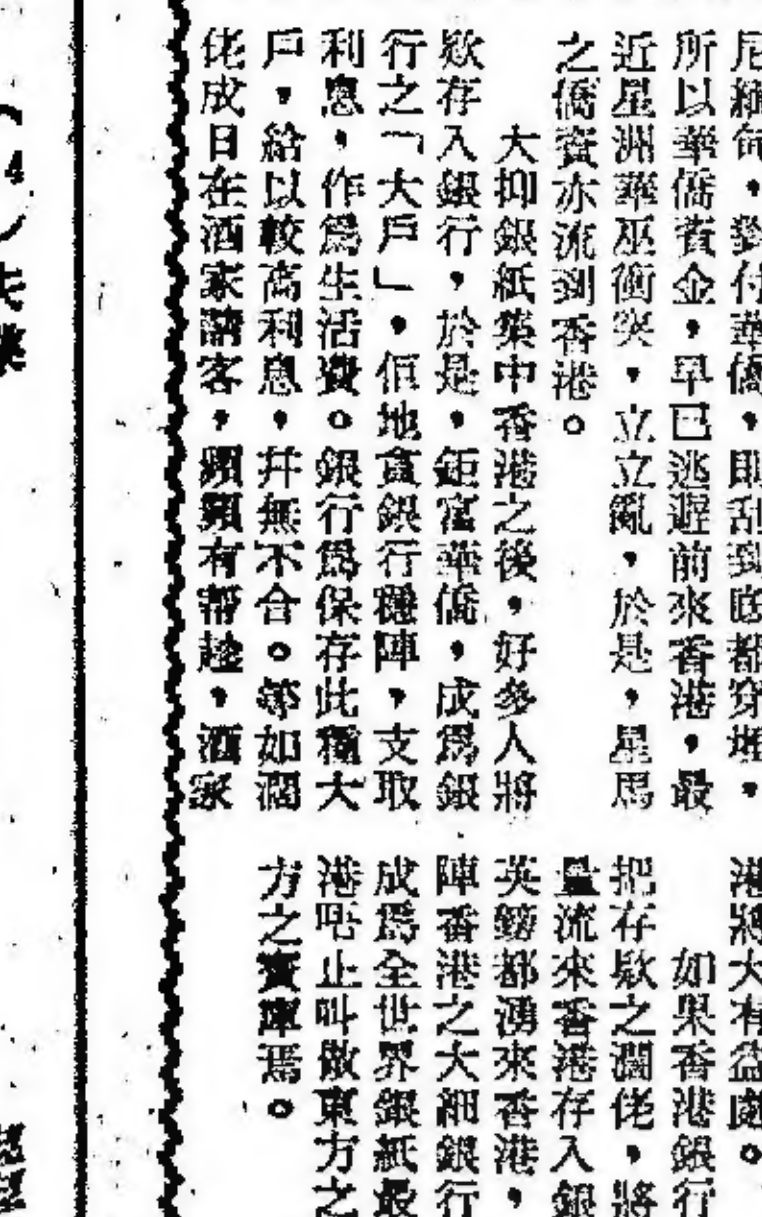 尼緬甸,對付華僑,則刮到底都穿埋,
所以華僑資金,早已逃避前來香港,最
近星洲華巫衝突,立立亂,於是,星馬
之僑資亦流到香港。
大抑銀紙集中香港之後,好多人將
欵存入銀行,於是,鉅富華僑,成爲銀
行之「大戶」,佢地貪銀行穩陣,支取
利息,作爲生活費。銀行爲保存此種大
戶,給以較高利息,幷無不合。等如濶
佬成日在酒家請客,頻頻有帮趁,酒家
港將大有益處。
如果香港銀行
把存欵之濶佬,將
量流來香港存入銀
英鎊都湧來香港,
陣香港之大細銀行
成爲全世界銀紙最
港唔止叫做東方之
方之寶庫焉。